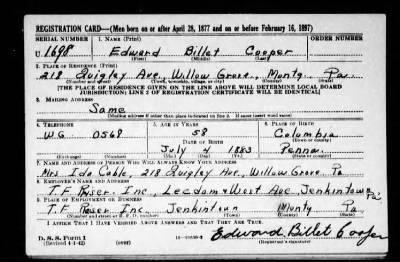 REGISTRATION CARD—(Men born on or after April 28, 1877 and on or before February 16, 1897)
SERIAL NUMBER 1. NAME (Print) ORDER NUMBER
U. 1698 Edward Billet Cooper
(First) (Middle) (Last)
2. PLACE OF RESIDENCE (Print)
218 Quigley Ave., Willow Grove, Montg. Pa.
(Number and street) (Town, township, village, or city) (County) (State)
[THE PLACE OF RESIDENCE GIVEN ON THE LINE ABOVE WILL DETERMINE LOCAL BOARD
JURISDICTION; LINE 2 OF REGISTRATION CERTIFICATE WILL BE IDENTICAL]
3. MAILING ADDRESS
Same
[Mailing address if other than place indicated on line 2. If same insert word same]
4. TELEPHONE 5. AGE IN YEARS 6. PLACE OF BIRTH
W.G. 0568 58 Columbia
DATE OF BIRTH (Town or county)
July 4 1883 Penna.
(Exchange) (Number) (Mo.) (Day) (Yr.) (State or country)
7. NAME AND ADDRESS OF PERSON WHO WILL ALWAYS KNOW YOUR ADDRESS
Mrs Ida Cable, 218 Quigley Ave., Willow Grove Pa
8. EMPLOYER'S NAME AND ADDRESS
T. F. Inc., West Ave, Jenkintown Pa.
9. PLACE OF EMPLOYMENT OR BUSINESS
T. F. Inc. Jenkintown Montg Pa
(Number and street or R. F. D. number) (Town) (County) (State)
I AFFIRM THAT I HAVE VERIFIED ABOVE ANSWERS AND THAT THEY ARE TRUE.
D. S. S. Form 1
(Revised 4-1-42) (over)
Edward Billet Cooper
(Registrant's signature)